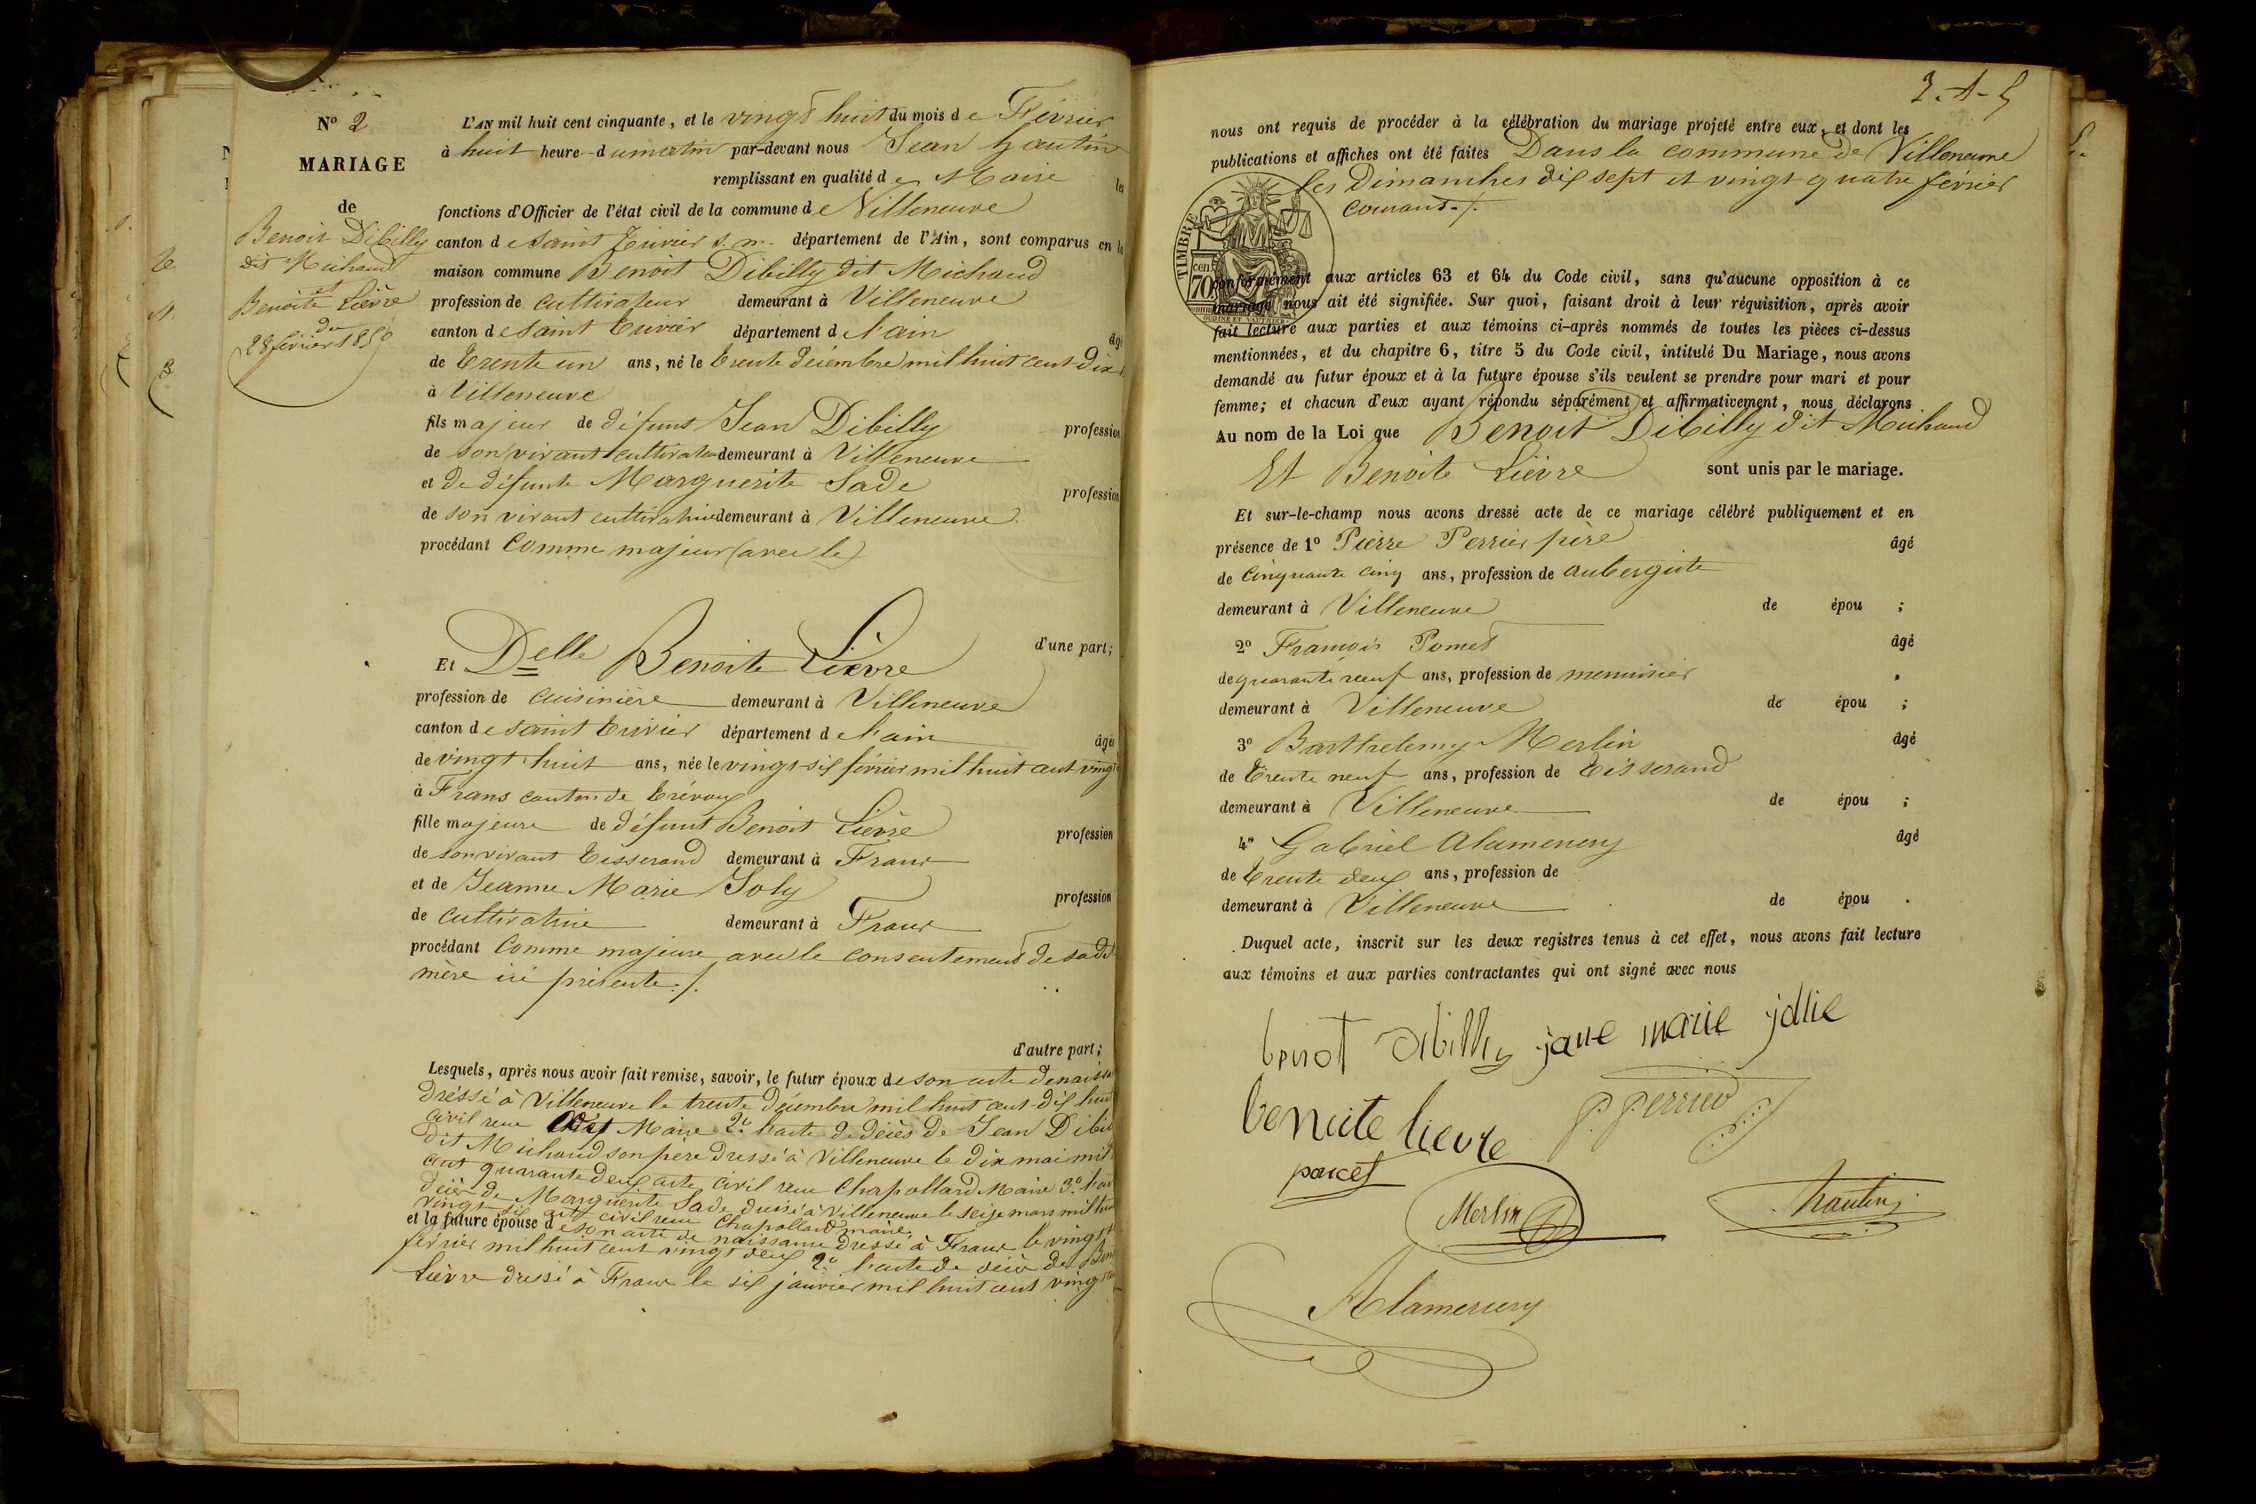 N° 2
MARIAGE
de
Benoit Dibilly
dit Michaud
et
Benoîte Lièvre
du
28 février 1850
L'AN mil huit cent cinquante, et le vingt huit du mois de Février
à huit heure du matin par-devant nous Jean hautin
remplissant en qualité de Maire les
fonctions d'Officier de l'état civil de la commune de Villeneuve
canton de saint trivier s. m. département de l'Ain, sont comparus en la
maison commune Benoit Dibilly dit Michaud
profession de cultivateur demeurant à Villeneuve
canton de saint trivier département de l'ain
âgé
de trente un ans, né le trente décembre mil huit cent dix
à Villeneuve
fils majeur de défunt Jean Dibilly profession
de son vivant cultivateur demeurant à Villeneuve
et de défunte Marguerite Sade profession
de son vivant cultivatrice demeurant à Villeneuve
procédant comme majeur (avec le)
d'une part;
Et Delle Benoite Lièvre
profession de cuisinière demeurant à Villeneuve
canton de saint trivier département de l'ain âgée
de vingt huit ans, née le vingt-six février mil huit cent vingt
à Frans canton de trévoux
fille majeure de défunt Benoit Lièvre profession
de son vivant tisserand demeurant à Frans
et de Jeanne Marie Joly profession
de cultivatrice demeurant à Frans
procédant comme majeure avec le consentement de sadit
mère ici présente ./.
d'autre part;
Lesquels, après nous avoir fait remise, savoir, le futur époux de son acte de naissa
dréssé à Villeneuve le trente décembre mil huit cent dix huit
civil reçu Maire 2° l'acte de décès de Jean Dibil
dit Michaud son père dressé à Villeneuve le dix mai mil
cent quarante deux acte civil reçu Chapollard Maire 3° l'acte
décès de Marguerite Sade dressé à Villeneuve le seize mars mil huit
vingt six acte civil reçu Chapollard maire
et la future épouse de son acte de naissance dressé à Frans le vingt
février mil huit cent vingt deux 2° l'acte de décès de Ben
Lièvre dressé à Frans le six janvier mil huit cent vingt
nous ont requis de procéder à la célébration du mariage projeté entre eux, et dont les
publications et affiches ont été faites Dans la commune de Villeneuve
les Dimanches dix sept et vingt quatre février
courant ./.
TIMBRE
70 cen
OUDINÉ ET VAUTHIER
conformément aux articles 63 et 64 du Code civil, sans qu'aucune opposition à ce
mariage nous ait été signifiée. Sur quoi, faisant droit à leur réquisition, après avoir
fait lecture aux parties et aux témoins ci-après nommés de toutes les pièces ci-dessus
mentionnées, et du chapitre 6, titre 5 du Code civil, intitulé Du Mariage, nous avons
demandé au futur époux et à la future épouse s'ils veulent se prendre pour mari et pour
femme; et chacun d'eux ayant répondu séparément et affirmativement, nous déclarons
Au nom de la Loi que Benoit Dibilly dit Michaud
Et Benoite Lièvre sont unis par le mariage.
Et sur-le-champ nous avons dressé acte de ce mariage célébré publiquement et en
présence de 1° Pierre Perrier père âgé
de cinquante cinq ans, profession de aubergiste
demeurant à Villeneuve de épou ;
2° François Poncet âgé
de quarante neuf ans, profession de menuisier
demeurant à Villeneuve de épou ;
3° Barthelemy Merlin âgé
de trente neuf ans, profession de tisserand
demeurant à Villeneuve de épou ;
4° Gabriel Alamercery âgé
de trente deux ans, profession de
demeurant à Villeneuve de épou .
Duquel acte, inscrit sur les deux registres tenus à cet effet, nous avons fait lecture
aux témoins et aux parties contractantes qui ont signé avec nous
benot dibilly jane marie jolie
benoite lievre P. Perrier
poncet
Merlin hautin
Alamercery